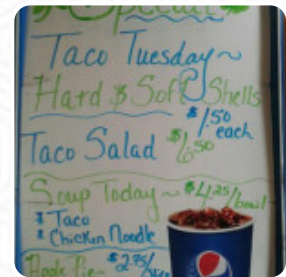 Special
Taco Tuesday~
Hard & Soft Shells
$1.50
each
Taco Salad $6.50
Soup Today ~ $4.25/bowl
Taco
Chicken Noodle
Apple Pie~ $2.75/
pepsi